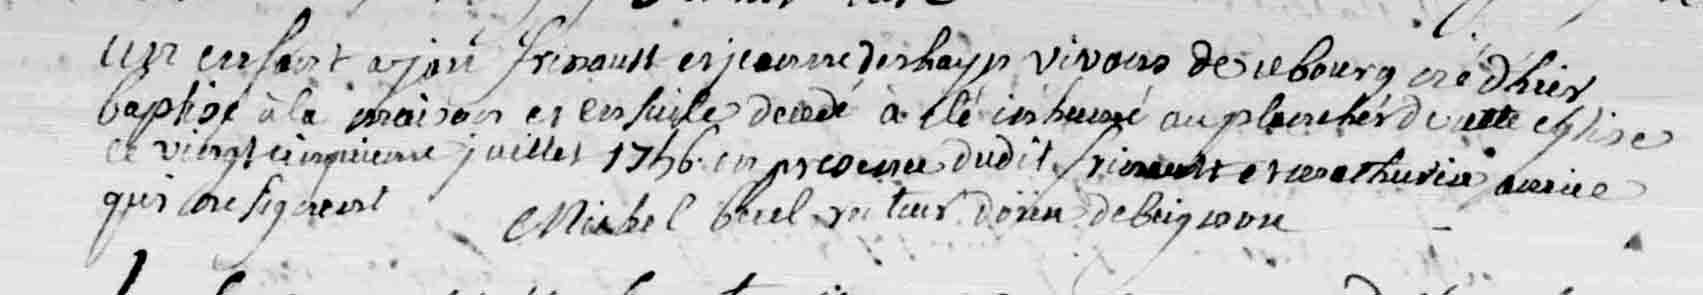 un enfant a jan frinault et jeanne deshays vivans de ce bourg né d'hier
baptisé à la maison et ensuite decedé à eté inhumé au plancher de cette eglise
ce vingt cinquieme juillet 1756 en presence dudit frinault et mathurin
qui ne signent
Michel recteur de beignon